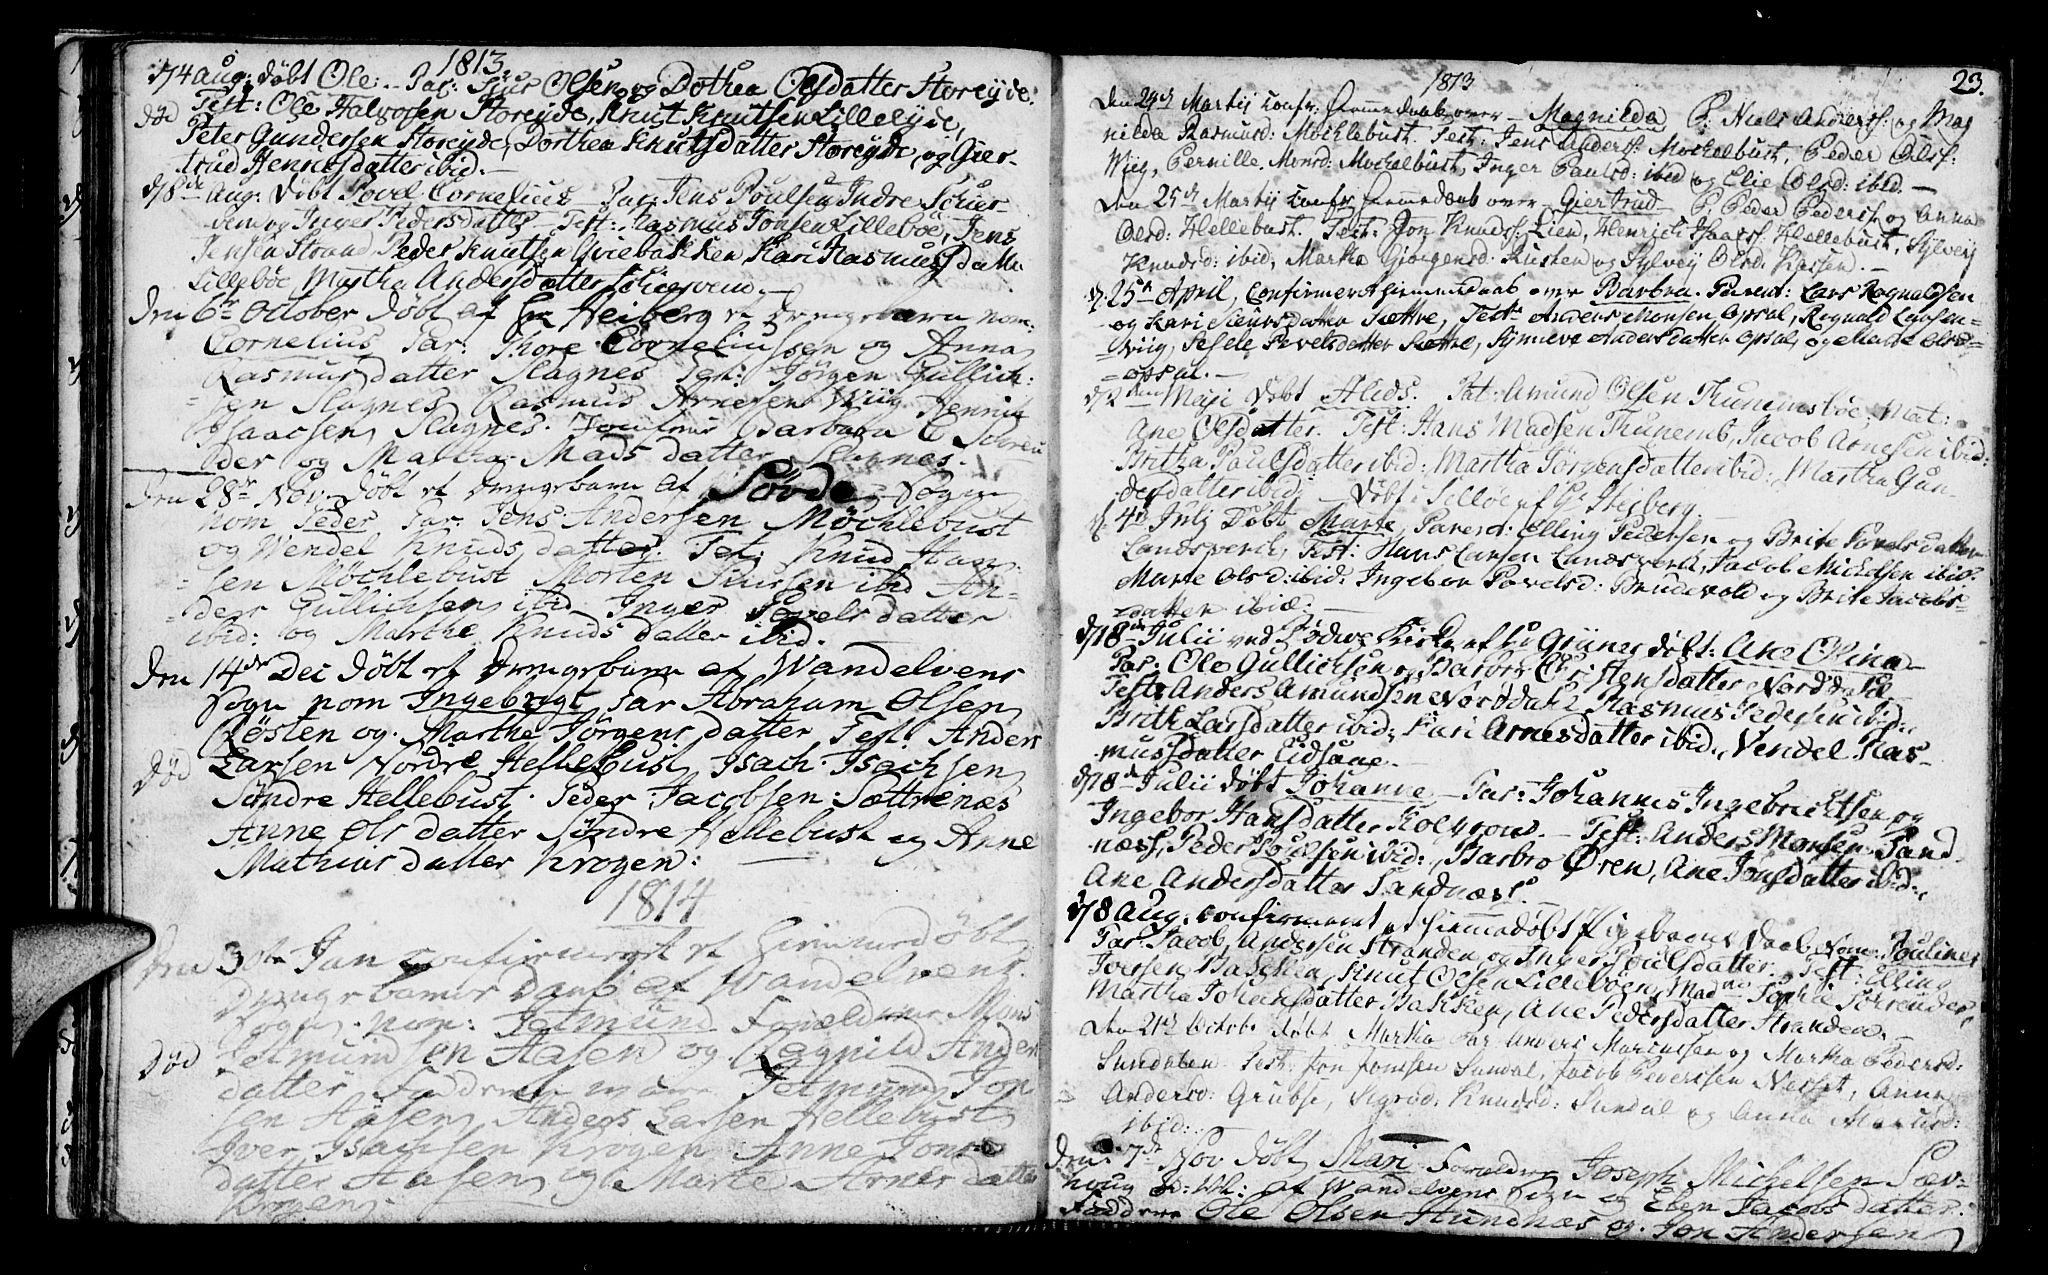 1813.
d/4 Aug: døbt Ole. Par: Siur Olsen og Dothea Olsdatter Storeyde.
død Test: Ole Halvorsen Storeyde, Knut Knutsen Lilleeyde,
Peter Gundersen Storeyde, Dorthea Knutsdatter Storeyde, og Gier-
trud Hennesdatter ibid.
d/8de Aug: døbt Povel Cornelius Par: Jens Poulsen Indre
og Inger Pedersdatter Test: Rasmus Jonsen Lillebøe, Jens
Jensen Strand, Peder Knutsen Qviebakken, Kari Rasmusdatter
Lillebøe, Martha Andersdatter
Den 6te October døbt af Hr Heiberg et Drengebarn nom:
Cornelius Par: Thore Corneliussen og Anna
Rasmusdatter Slagnes Test: Jørgen Gullich-
sen Slagnes Rasmus Arnesen Wiig Henrik
Isaacsen Slagnes. Jomfrue Barbara C Schreu
der og Martha Mads datter Slagnes.
Den 28de Nov. døbt et Drengebarn af Søvde Sogn
nom Peder Par. Jens Andersen Möchlebust
og Wendel Knuds datter. Test: Knud Han-
sen Möchlebust Morten Siursen ibid An-
ders Gullichsen ibid Inger Povels datter
ibid: og Marthe Knuds datter ibid.
Den 14de Dec døbt et Drengebarn af Wandelvens
Sogn nom Ingebrigt Par Abraham Olsen
Røsten og Marthe Jørgens datter Test. Anders
Død Larsen Nordre Hellebust Isach Isachsen
Søndre Hellebust. Peder Jacobsen Sættrenæs
Anne Ols datter Søndre Hellebust og Anne
Mathias datter Krogen:
1814
Den 30te Jan confirmeret et hiemmedøbt
Drengebarns Daab af Wandelvens
Sogn nom: Setmund Forældrene Mons
Død Setmundsen Aasen og Ragnild Anders
datter Fadderne vare Setmund Jon
sen Aasen Anders Larsen Hellebust
Iver Isachsen Krogen Anne Jons
datter Aasen og Marte Arnes datter
Krogen.
1813 23.
Den 24de Martij confr: hiemmedaab over Magnilda P. Niels Anders: og Mag
nilda Rasmusd: Mochlebust. Test: Jens Anders: Mochelbust, Peder Olss:
Wiig, Pernille Monsd: Mochelbust, Inger Paulsd: ibid og Elie Olsd: ibid.
Den 25de Martij confr hiemmedaab over Giertrud P. Peder Peders: og Anna
Olsd: Hellebust. Test: Jon Knuds: Lien, Henrich Isaacs: Hellebust, Sylvej
Knudsd: ibid, Martha Giørgensd: Rusten og Sylvej Olsd: Aasen.
d. 25de April, Confirmert hiemmedaab over Barbra. Parent: Lars Ragnaldsen
og Kari Siursdatter Sættre, Test: Anders Monsen Opsal, Ragnald Larsen
Wiig, Sesele Povelsdatter Sættre, Synneve Andersdatter Opsal, og Marte Olsd
opsal.
d/2den Maji Døbt Aleds. Pat: Amund Olsen Thunemsbøe, Mat:
Ane Olsdatter. Test: Hans Madsen Thunemb, Jacob Arnesen ibid:
Britha Paulsdatter ibid: Martha Jørgensdatter ibid: Martha Gun-
dersdatter ibid: Døbt i Selløe af Hr Heiberg.
d. 4de Julj Døbt Marte, Parent: Elling Pedersen og Brite Povelsdatter
Landsverk, Test: Hans Larsen Landsverk, Jacob Michelsen ibid:
Marte Olsd: ibid: Ingebor Povelsd: Brudevold og Brite Jacobs-
datter ibid:
d/18de Julii ved Rødwe Kirke af Hr Grüner døbt: Ane Olina
Par: Ole Gullichsen og Barbro Christensdatter Norddahl
Test: Anders Amundsen Norddahl, Rasmus Pedersen ibid:,
Brith Larsdatter ibid:, Kari Arnesdatter ibid:, Vendel Ras-
musdatter Eidsaae.
d/18de Julii døbt Johanne Par: Johannes Ingebrichtsen og
Ingebor Hansdatter Test: Anders Monsen Sand-
næss, Peder Poulsen ibid:, Barbro Øren, Ane Jonsdatter ibid:,
Ane Andersdatter Sandnæss.
d/8 Aug: confirmeret et hiemmedøbt Pigebarns Daab, Nom: Pouline
Par: Jacob Andersen Stranden og Inger Poulsdatter. Test: Elling
Iversen Bakken, Knut Olsen Lillebøen, Madme Sophie Schreuder,
Martha Johansdatter Bakken, Ane Pedersdatter Stranden.
Den 21de Octobr døbt Martha Par Anders Mariussen og Martha Pedersd:
Sundalen Test: Jon Jonssen Sundal, Jacob Severssen Nasset, Anne
Andersd: Grubse, Sigrid Knudsd: Sundal og Anna Mariusd:
ibid:
Den 7de Nov døbt Mari Forældre Joseph Michelsen Sæv-
houg Wandelvens Sogn og Elen Jacobs datter.
Faddere Ole Olsen Hundnæs og Jon Andersen